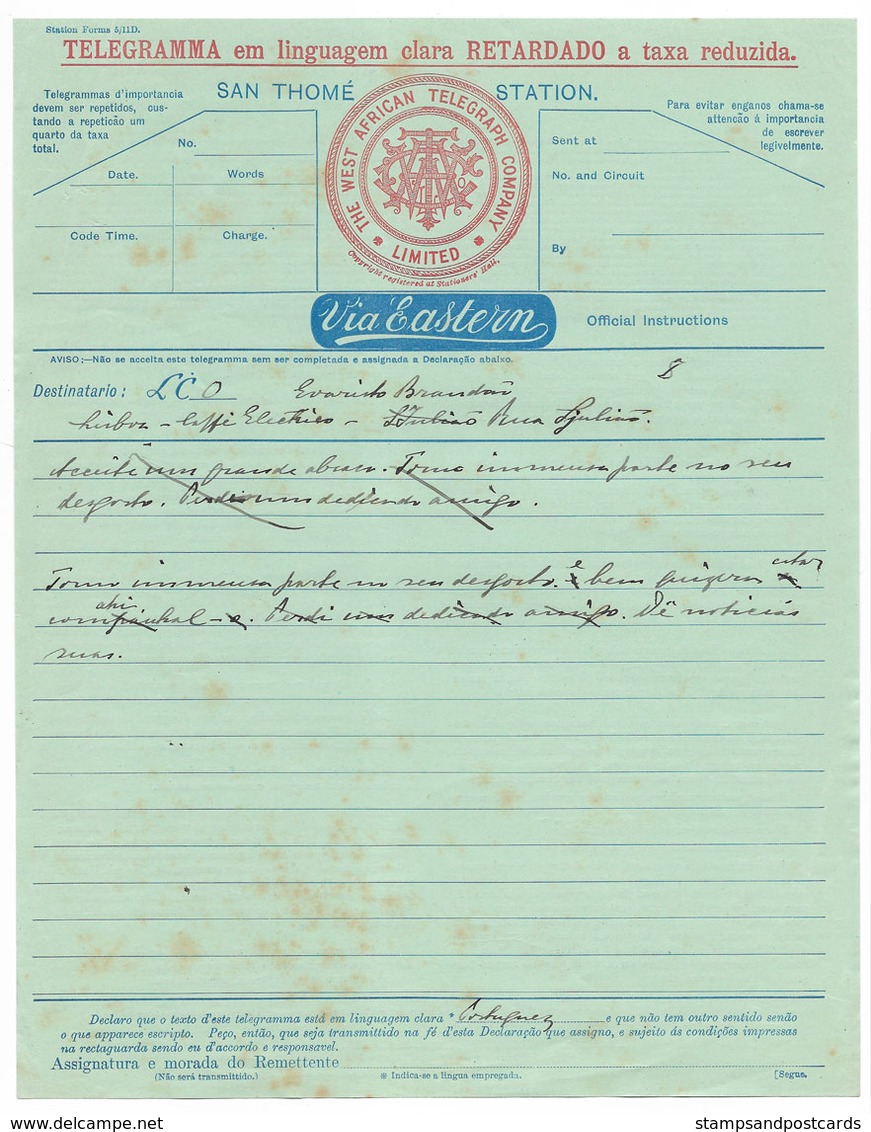 Station Forms 5/11D.
TELEGRAMMA em linguagem clara RETARDADO a taxa reduzida.
Telegrammas d'importancia
devem ser repetidos, cus-
tando a repeticão um
quarto da taxa
total.
SAN THOMÉ STATION.
THE WEST AFRICAN TELEGRAPH COMPANY
LIMITED
Copyright registered at Stationers' Hall,
Para evitar enganos chama-se
attencão á importancia
de escrever
legivelmente.
No.
Date. Words
Code Time. Charge.
Sent at
No. and Circuit
By
Via Eastern
Official Instructions
AVISO;—Não se acceita este telegramma sem ser completada e assignada a Declaração abaixo.
Destinatario: LCO Evaristo Brandão
Lisboa - Caffé Electrico - S Julião Rua S Julião.
Acceite um grande abraço. Tomo immensa parte no seu
desgosto. Perdi um dedicado amigo.
Tomo immensa parte no seu desgosto. e bem quizera estar
ahi
companhal-o. Perdi um dedicado amigo. Dê noticias
suas.
Declaro que o texto d'este telegramma está em linguagem clara * Portuguez e que não tem outro sentido senão
o que apparece escripto. Peço, então, que seja transmittido na fé d'esta Declaração que assigno, e sujeito ás condições impressas
na rectaguarda sendo eu d'accordo e responsavel.
Assignatura e morada do Remettente
(Não será transmittido.) * Indica-se a lingua empregada. [Segue.
stampsandpostcards